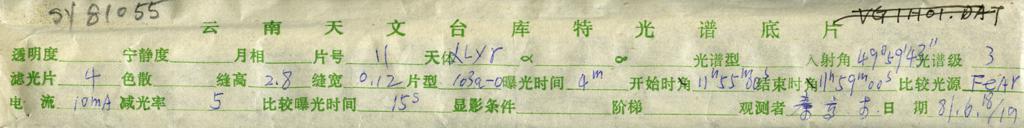 SY81055
云南天文台库特光谱底片
VG11101.DAT
透明度 宁静度 月相 片号 11 天体 αLyr α 光谱型 入射角 49°59′43″ 光谱级 3
滤光片 4 色散 缝高 2.8 缝宽 0.12 片型 103a-0 曝光时间 4m 开始时角 11h55m00s 结束时角 11h59m00s 比较光源 FeAr
电流 10mA 减光率 5 比较曝光时间 15s 显影条件 阶梯 观测者 日期 81.6.18/19